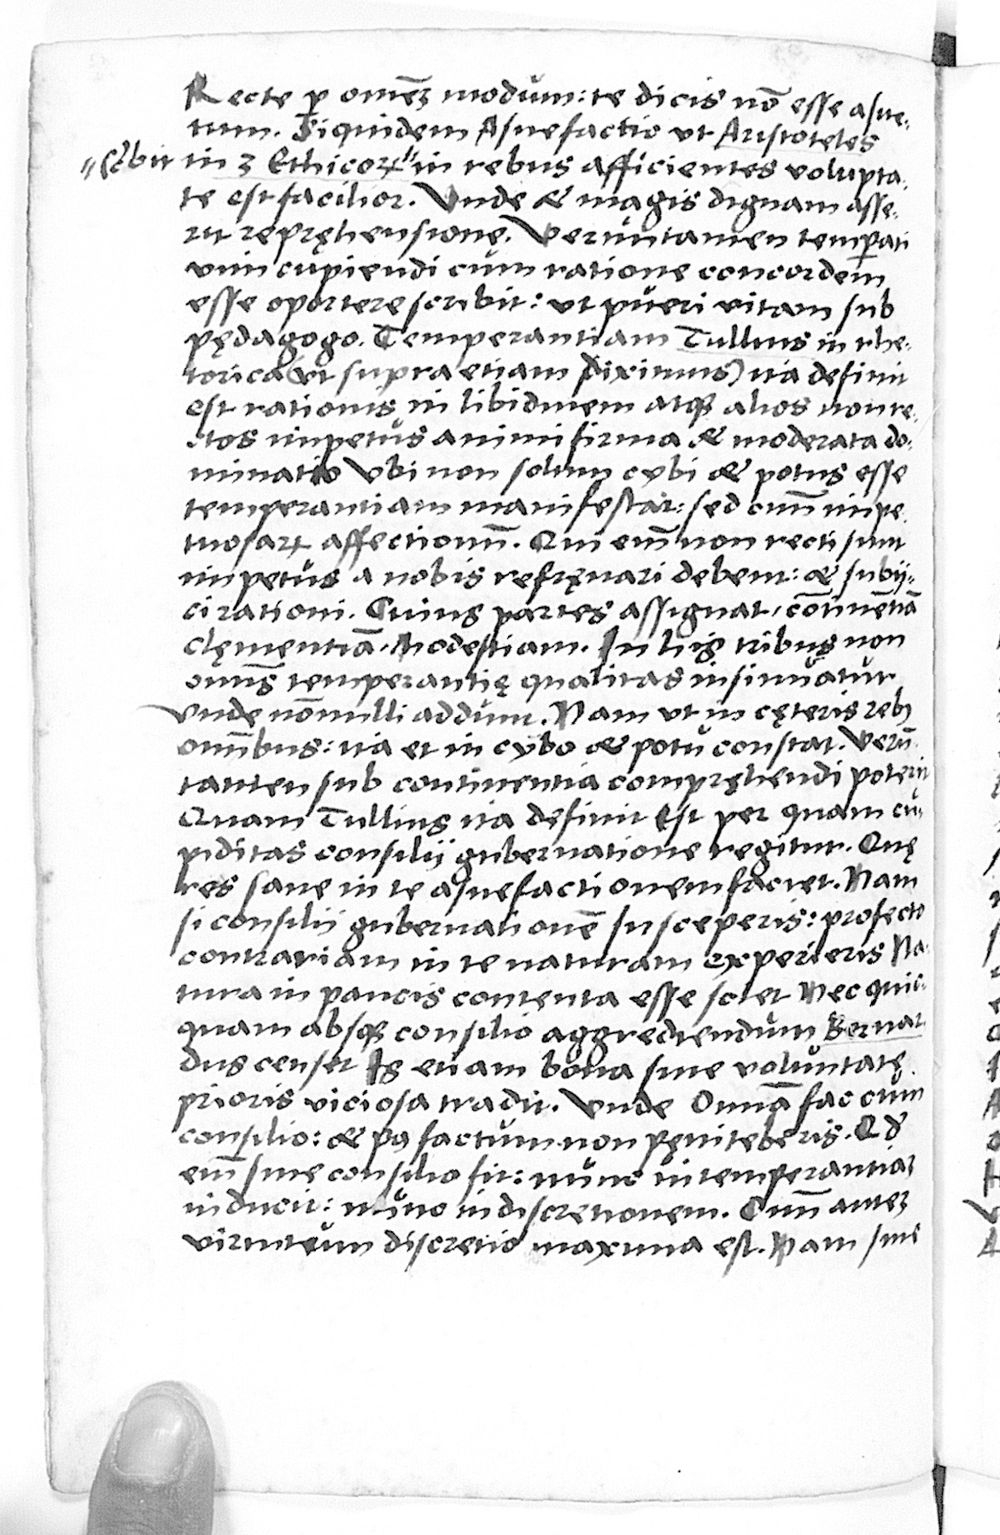 Recte ꝑ omeꝫ modum: te dicis nō esse asue-
tum. Siquidem Asuefactio vt Aristoteles
"scͥbit in 3 Ethicoꝝ" in rebus afficientes volupta-
te est facilior. Vnde & magis dignam asse-
rit repręhensionę. Veruntamen temꝑati
vim cupiendi cum ratione concordem
esse oportere scribit: vt pueri vitam sub
pędagogo. Temperantiam Tullius in rhe-
torica (vt supra etiam diximus) ita definit
est rationis in libidinem atqꝫ alios non re-
ctos impetus animi firma & moderata do-
minatio Vbi non solum cybi & potus esse
temperantiam manifestat: sed cum̄ impe-
tuosaꝝ affectionū. Qui em̄ non recti sunt
impetus a nobis refręnari debent: & subij-
ci rationi. Cuius partes assignat, cōtinētiā
clęmentiā. Modestiam. In his tribus non
omīs temperantię qualitas insinuatur
vnde nōnulli addunt. Nam vt in cęteris rebꝰ
omībus: ita et in cybo & potu constat. Verū-
tamen sub continentia compręhendi poterit
Quam Tullius ita definit Est per quam cu-
piditas consilij gubernatione regitur. Quę
res sane in te asuefactionem faciet. Nam
si consilii gubernationē susceperis: profecto
contrariam in te naturam experieris Na-
tura in paucis contenta esse solet Nec quic-
quam absqꝫ consilio aggrediendum Bernar-
dus censet Is etiam bona sine voluntatę
prioris viciosa tradit. Vnde Omīa fac cum
consilio: & pꝰ factum non pęniteberis. Qd
em̄ sine consilio fit: nunc intemperantiaꝫ
inducit: nunc indiscretionem. Cum auteꝫ
virtutum discretio maxima est. Nam sine